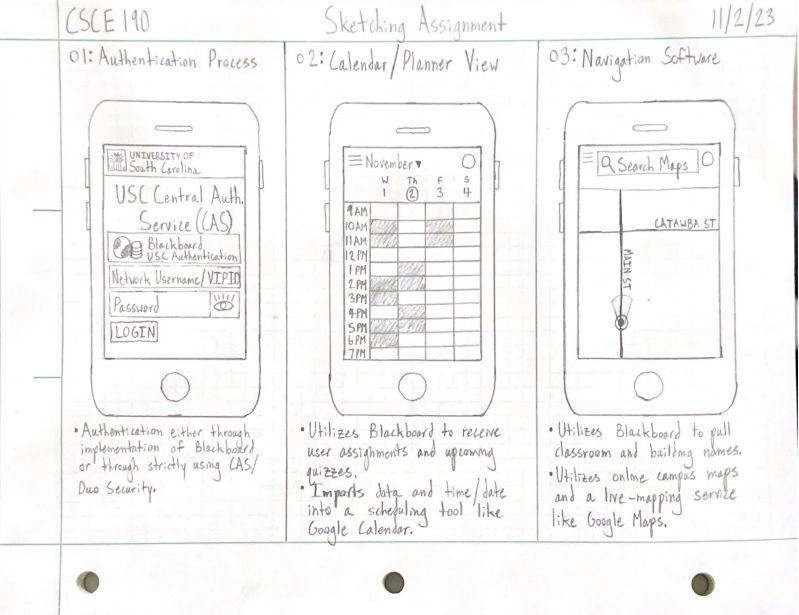 CSCE 190
Sketching Assignment
11/2/23
01: Authentication Process
UNIVERSITY OF
South Carolina
USC Central Auth.
Service (CAS)
Blackboard
USC Authentication
Network Username/VIPID
Password
LOGIN
• Authentication either through
implementation of Blackboard
or through strictly using CAS/
Duo Security.
02: Calendar/Planner View
November ▾
W Th F S
1 2 3 4
9AM
10AM
11AM
12PM
1PM
2PM
3PM
4PM
5PM
6PM
7PM
• Utilizes Blackboard to receive
user assignments and upcoming
quizzes.
• Imports data and time/date
into a scheduling tool like
Google Calendar.
03: Navigation Software
Search Maps
CATAWBA ST
MAIN ST
• Utilizes Blackboard to pull
classroom and building names.
• Utilizes online campus maps
and a live-mapping service
like Google Maps.